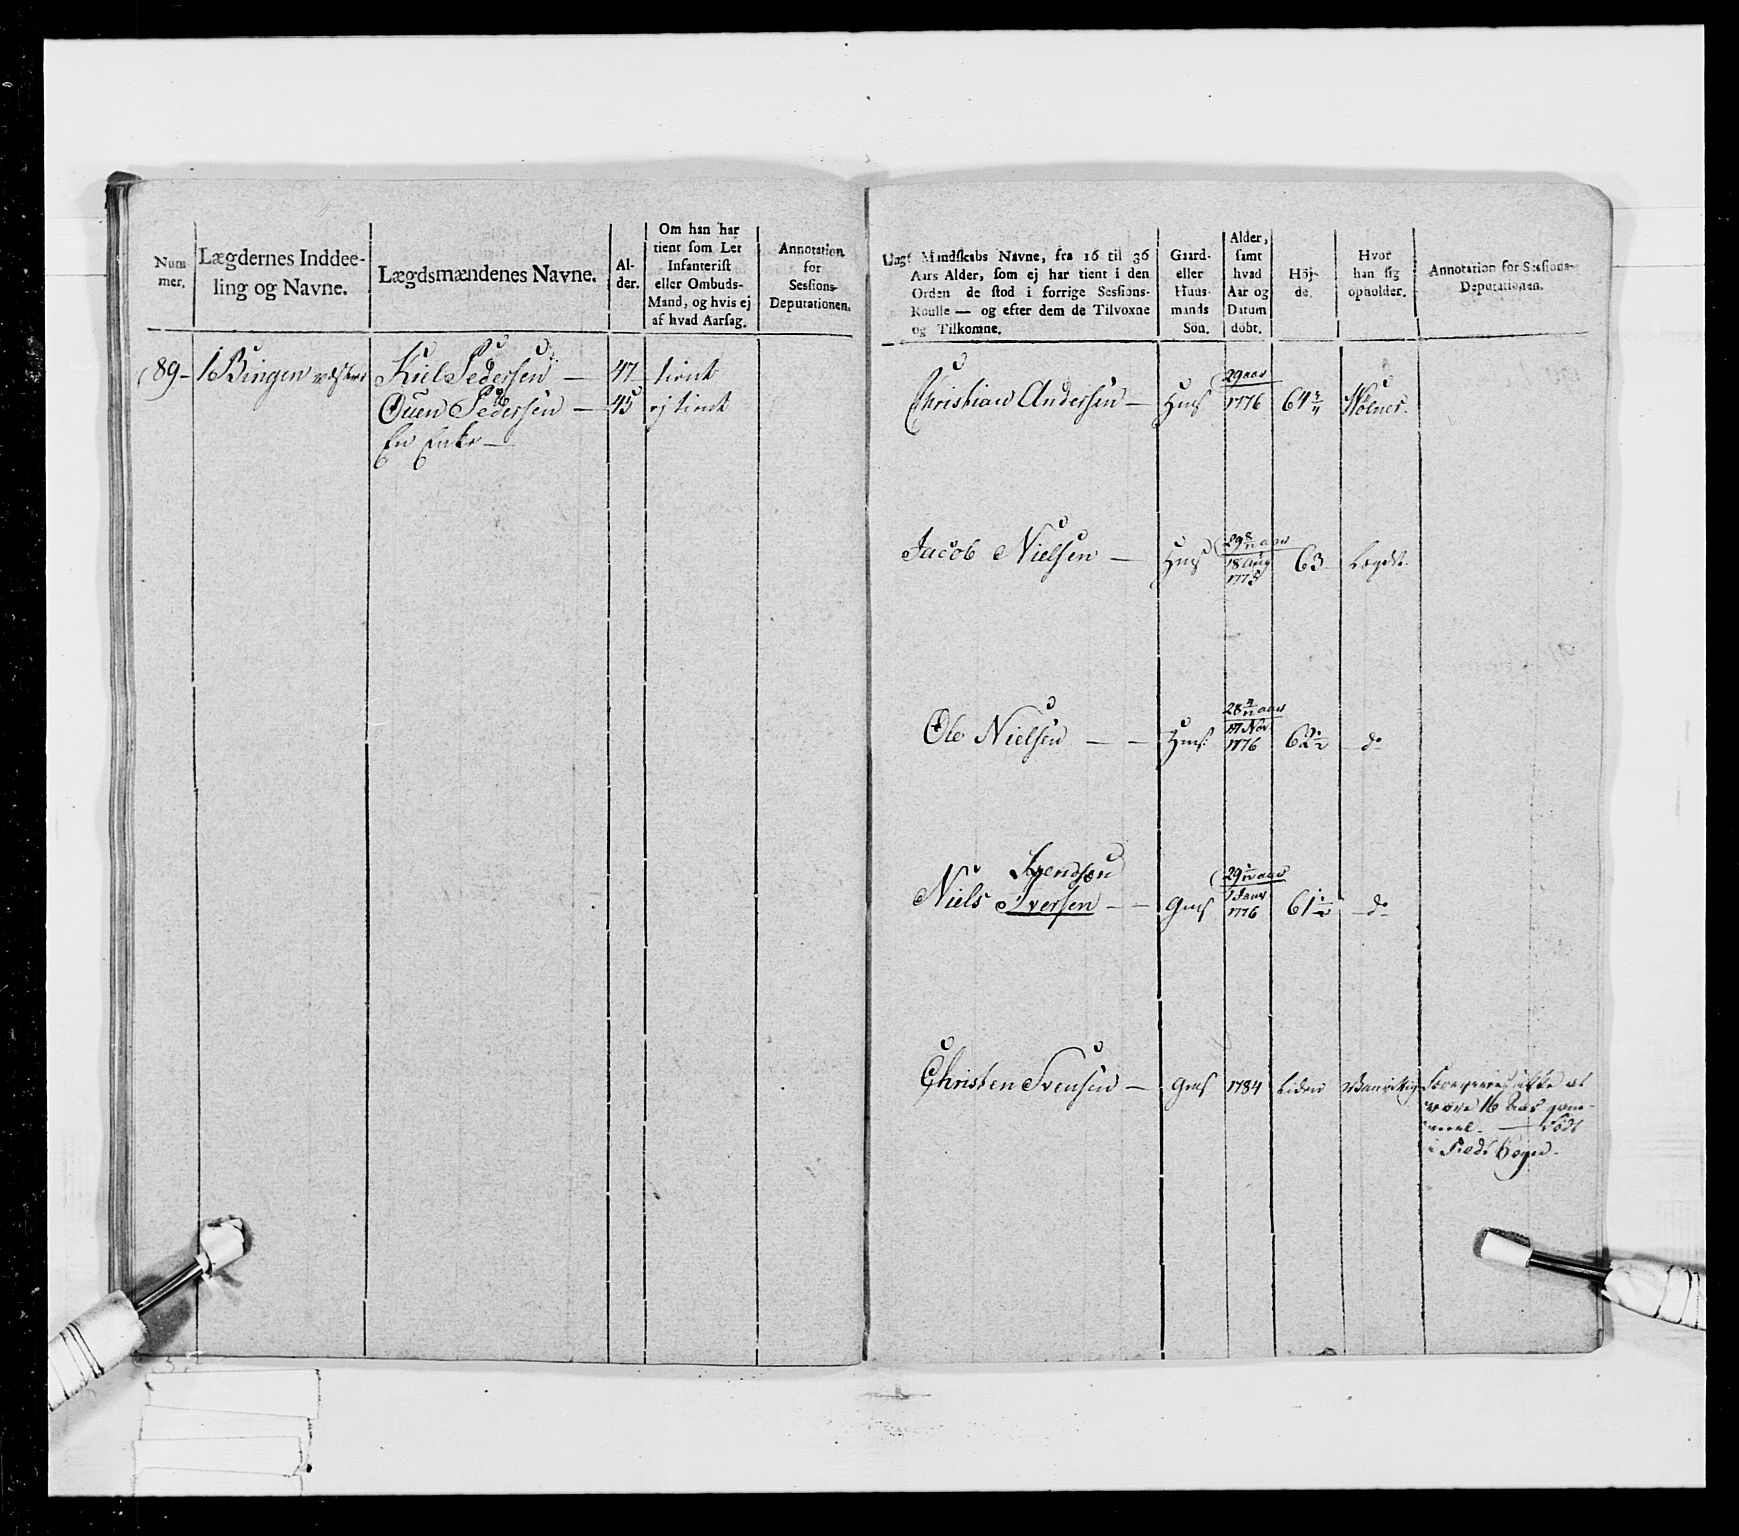 Num
mer.
Lægdernes Inddee-
ling og Navne.
Lægdsmændenes Navne.
Al-
der.
Om han har
tient som Let
Infanterist
eller Ombuds-
Mand, og hvis ej
af hvad Aarsag.
Annotation
for
Sessions-
Deputationen.
89 - 1 Bingen Kiel Pedersen - 47 tient
Ouen Pedersen - 45 ej tient
En Enke -
Ungt Mandskabs Navne, fra 16 til 36
Aars Alder, som ej har tient i den
Orden de stod i forrige Sessions-
Roulle — og efter dem de Tilvoxne
og Tilkomne.
Gaard-
eller
Huus-
mands
Sön.
Alder,
samt
hvad
Aar og
Datum
döbt.
Höj-
de.
Hvor
han sig
opholder.
Annotation for Sessions-
Deputationen.
29 aar
Christian Andersen - Huus 1776 64 3/4
29 8/12 aar
Jacob Nielsen - Huus 18 Aug 63 - Lægdet.
1775
28 4/12 aar
17 Nov
Ole Nielsen - - Huus: 1776 62 1/2 - do
Svendsen
29 aar
Niels Iversen - - Gms 1776 61 1/2 - do
Christen Svensen - Gms 1784 Liden Vanvittig Foregives ikke at
være 16 Aar gam-
mel. — Född
i Sogn.